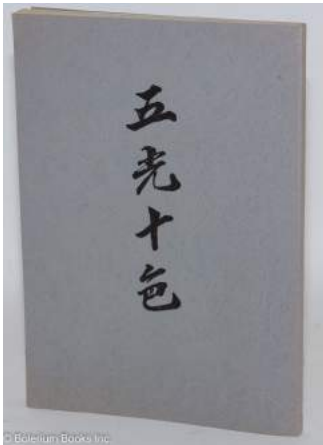 五光十色
© Bolerium Books Inc.